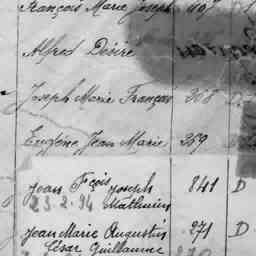 François Marie Joseph
Alfred Désiré
Joseph Marie Français 368 D
Eugène Jean Marie 369
Jean Fçois Joseph 841 D
23.2.94 Mathurin
Jean Marie Augustin 271 D
César Guillaume